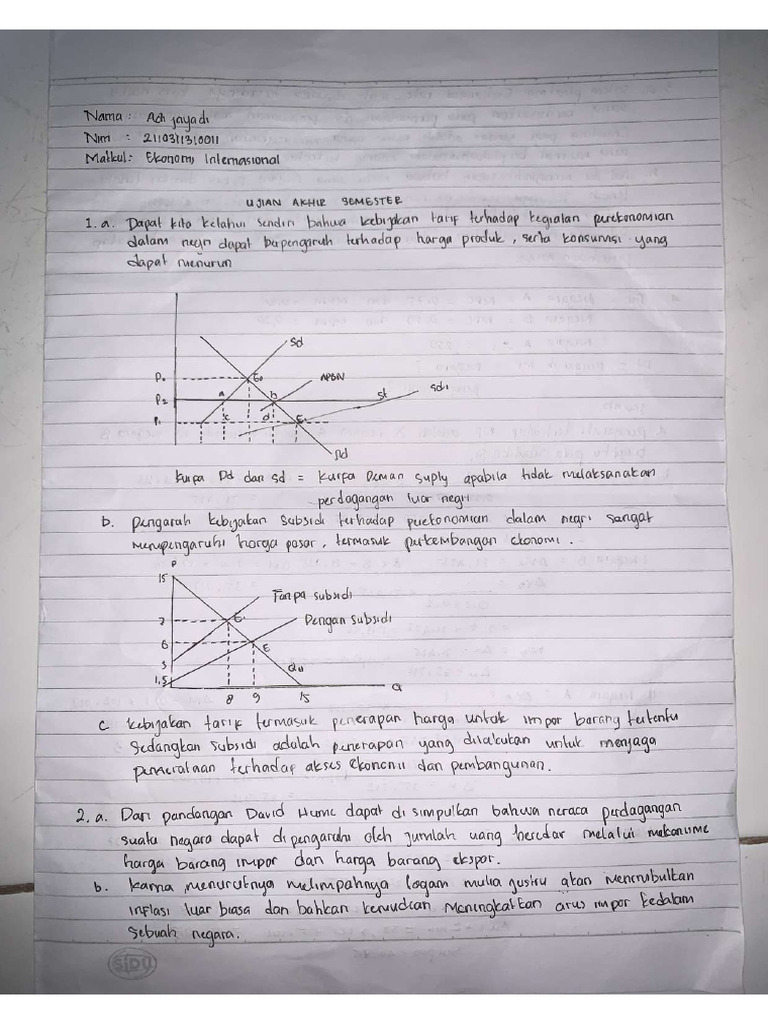 Nama : Adi jayadi
Nim : 2110311310011
Matkul : Ekonomi Internasional
UJIAN AKHIR SEMESTER
1. a. Dapat kita ketahui sendiri bahwa kebijakan tarif terhadap kegiatan perekonomian
dalam negri dapat berpengaruh terhadap harga produk, serta konsumsi yang
dapat menurun
Sd
P0
E0
APBN
Sd1
P2
a
b
St
c
d
E1
P1
Dd
kurpa Dd dan Sd = kurpa Deman suply apabila tidak melaksanakan
perdagangan luar negri
b. pengarah kebijakan subsidi terhadap perekonomian dalam negri sangat
mempengaruhi harga pasar, termasuk perkembangan ekonomi.
P
15
Tanpa subsidi
Dengan subsidi
7
E'
6
E
3
1,5
Q
8
9
15
c kebijakan tarif termasuk penerapan harga untuk impor barang tertentu
sedangkan subsidi adalah penerapan yang dilakukan untuk menjaga
pemerataan terhadap akses ekonomi dan pembangunan.
2. a. Dari pandangan David Hume dapat di simpulkan bahwa neraca perdagangan
suatu negara dapat di pengaruhi oleh jumlah uang beredar melalui mekanisme
harga barang impor dan harga barang ekspor.
b. karna menurutnya melimpahnya logam mulia justru akan menimbulkan
inflasi luar biasa dan bahkan kemudian meningkatkan arus impor kedalam
sebuah negara.
SIDU